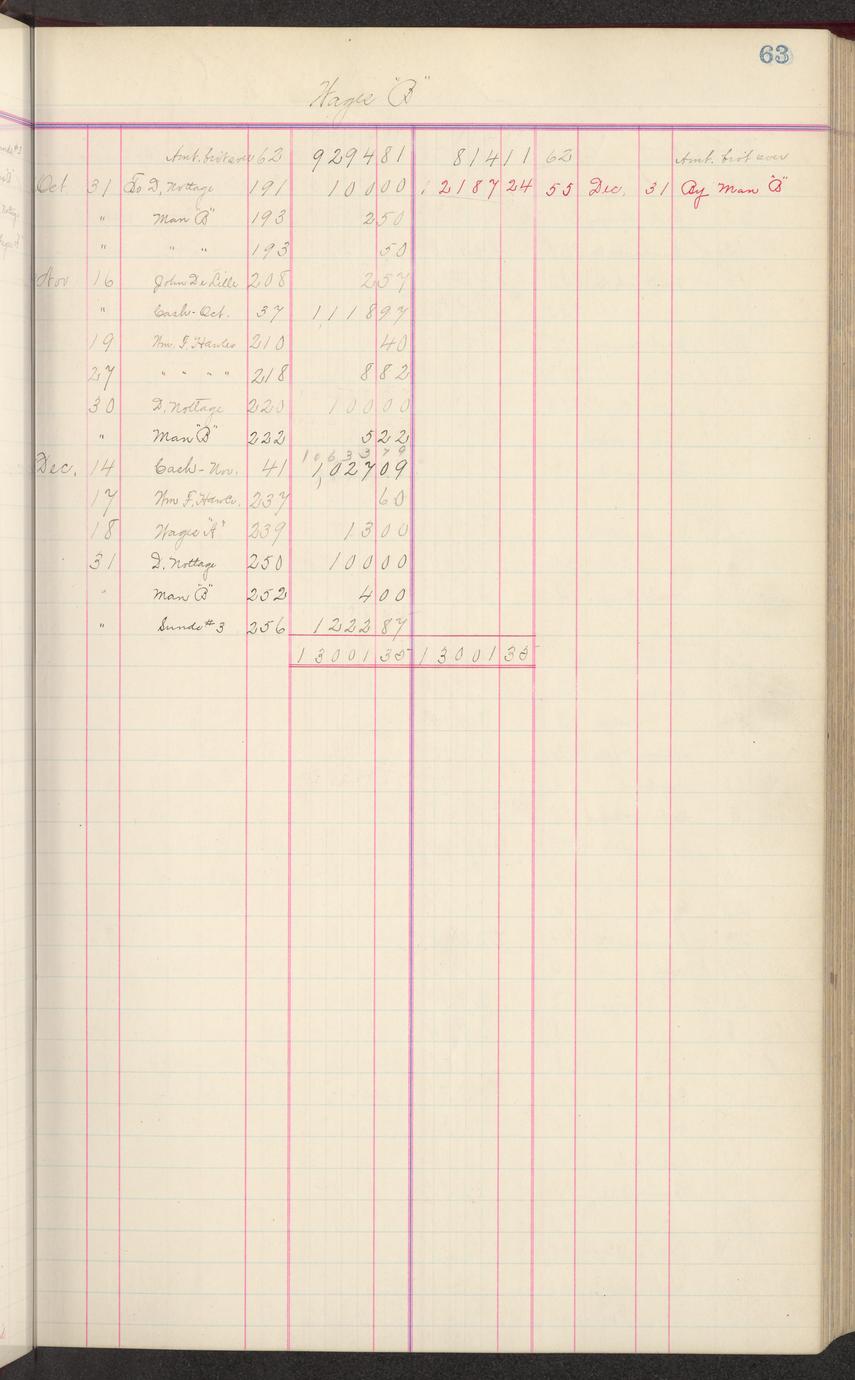 63
Wages "B"
Amt. bro't over 62 9294 81 814 11 62 Amt. bro't over
Oct 31 To D. Nottage 191 100 00 12187 24 55 Dec. 31 By Man "B"
" Man "B" 193 2 50
" " " 193 50
Nov 16 John De Lille 208 2 57
" Cash - Oct. 37 1118 97
19 Wm. F. 210 40
27 " " " " 218 8 82
30 D. Nottage 220 100 00
" Man "B" 222 5 22
10633 79
Dec. 14 Cash - Nov. 41 1,027 09
17 Wm F. 237 60
18 Wages "A" 239 13 00
31 D. Nottage 250 100 00
" Man "B" 252 4 00
" Sunds #3 256 1222 87
13001 35 13001 35